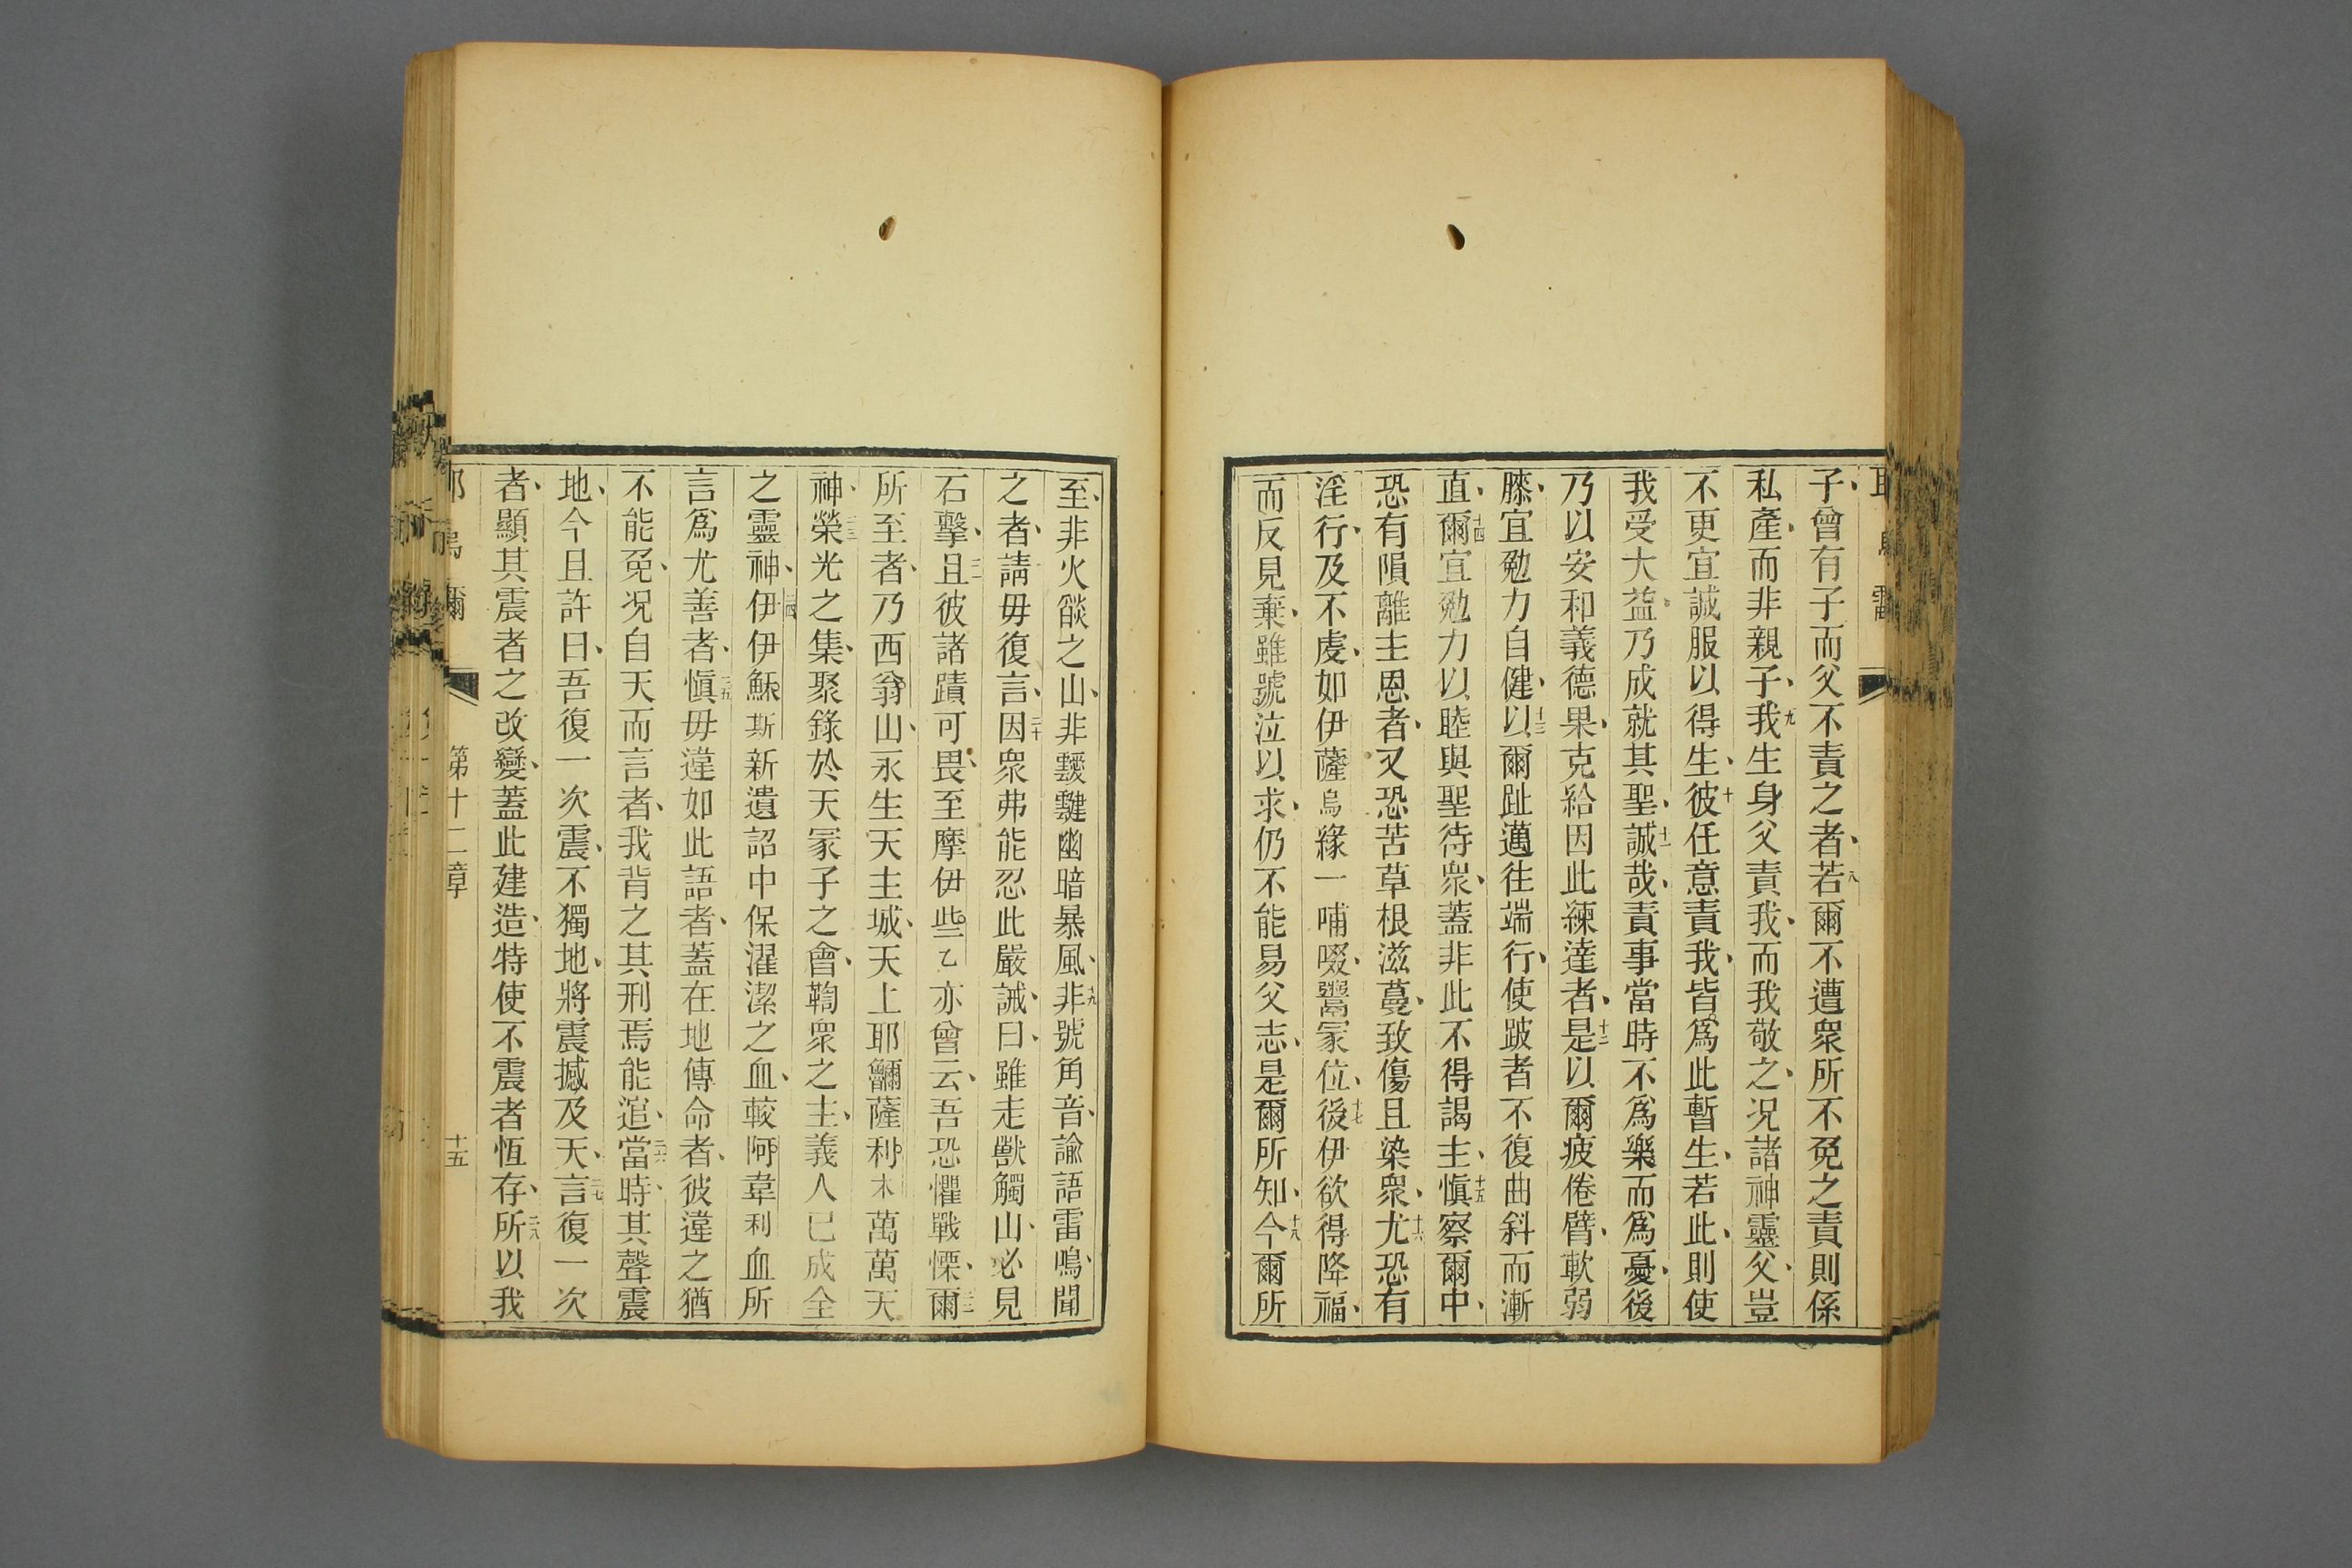 子、曾有子而父不責之者、八若爾不遭眾所不免之責則係
私產、而非親子、九我生身父責我、而我敬之、况諸神靈父、豈
不更宜誠服以得生、十彼任意責我、皆為此暫生、若此、則使
我受大益、乃成就其聖、十一誠哉、責事當時不為樂而為憂、後
乃以安和義德果、克給因此練達者、十二是以爾疲倦臂、軟弱
膝、宜勉力自健、十三以爾趾邁往端行、使跛者不復曲斜而漸
直、十四爾宜勉力以睦與聖待眾、蓋非此不得謁主、十五慎察爾中、
恐有隕離主恩者、又恐苦草根滋蔓、致傷且染眾、十六尤恐有
淫行、及不虔、如伊薩烏緣一哺啜、鬻冢位、十七後伊欲得降福、
而反見棄、雖號泣以求、仍不能易父志、是爾所知、十八今爾所
至、非火燄之山、非靉靆幽暗暴風、十九非號角音、諭語雷鳴、聞
之者、請毋復言、二十因眾弗能忍此嚴誡、曰、雖走獸觸山、必見
石擊、二一且彼諸蹟可畏、至摩伊些乙亦曾云、吾恐懼戰慄、二二爾
所至者、乃西翁山、永生天主城、天上耶𬺈薩利木萬萬天
神、二三榮光之集、聚錄於天冢子之會、鞫眾之主、義人已成全
之靈神、二四伊伊穌斯新遺詔中保濯潔之血、較阿韋利血所
言為尤善者、二五慎毋違如此語者、蓋在地傳命者、彼違之猶
不能免、况自天而言者、我背之其刑焉能逭、二六當時、其聲震
地、今且許曰、吾復一次震、不獨地、將震撼及天、二七言復一次
者、顯其震者之改變、蓋此建造、特使不震者恆存、二八所以我
第十二章 十五